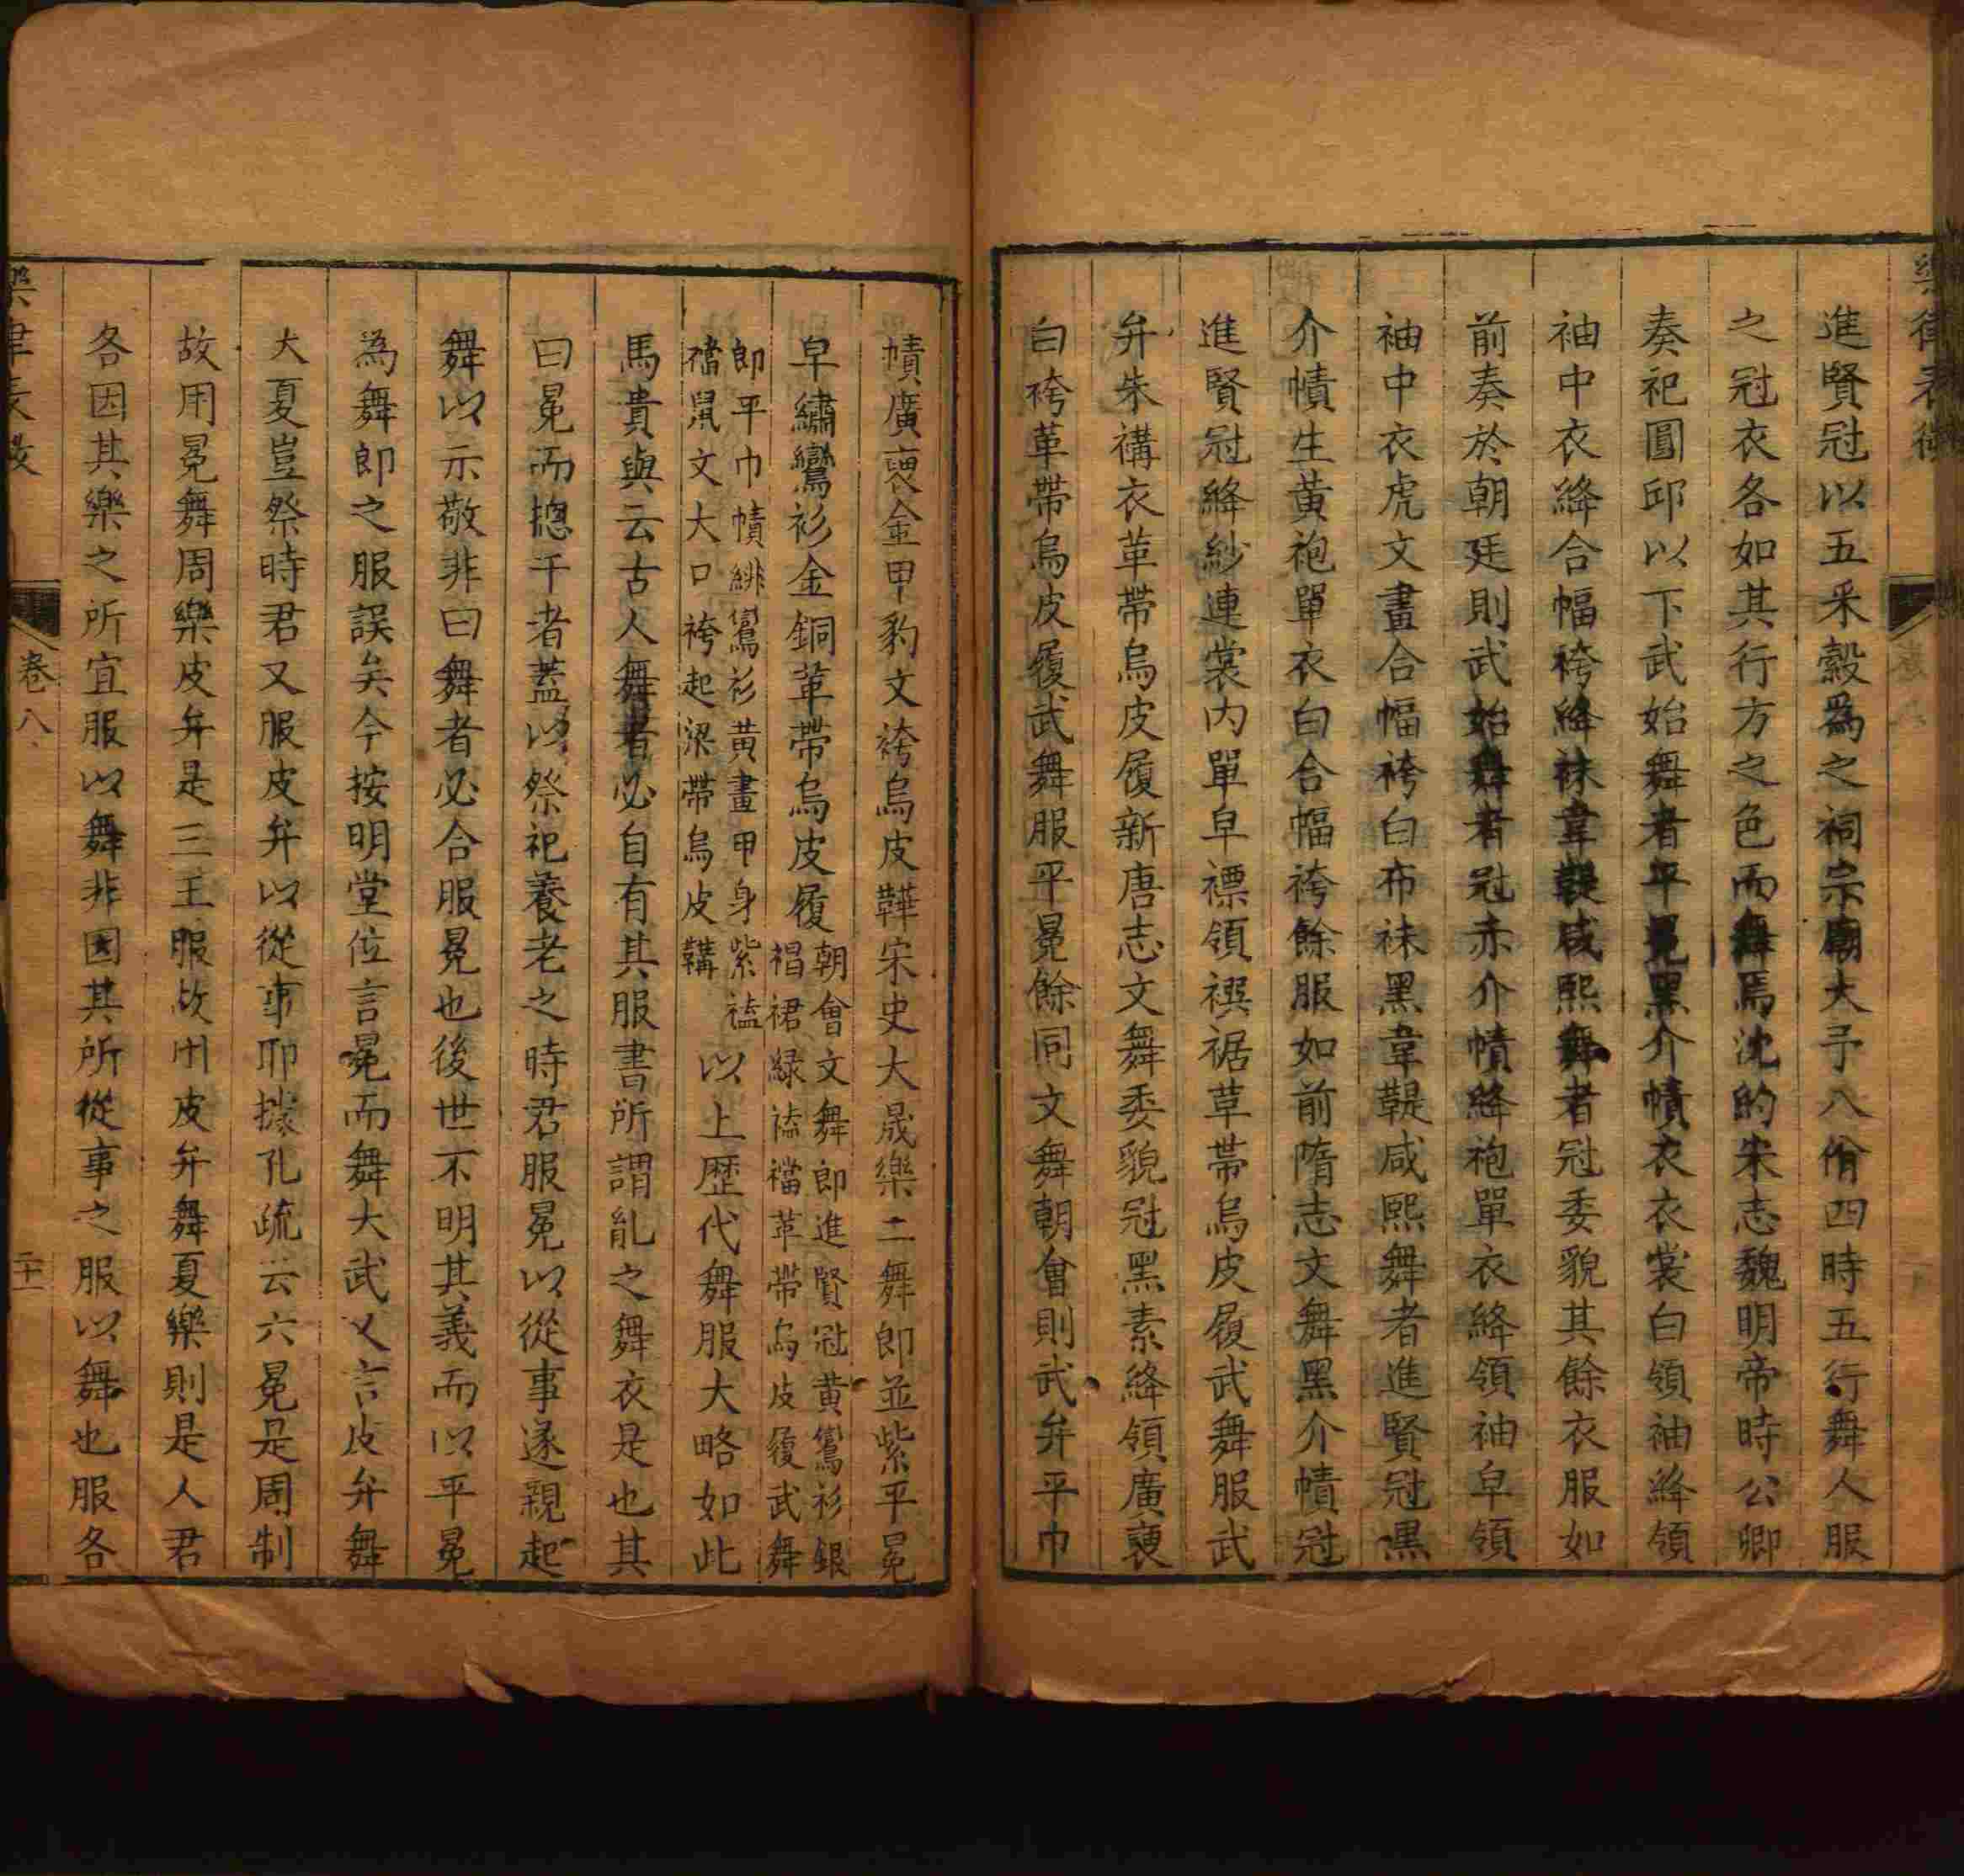 進賢冠以五釆縠爲之祠宗廟大予八佾四時五行舞人服
之冠衣各如其行方之色而舞焉沈約宋志魏明帝時公卿
奏祀圓邱以下武始舞者平冕黑介幘衣衣裳白領袖絳領
袖中衣絳合幅袴絳袜韋鞮咸熙舞者冠委貌其餘衣服如
前奏於朝廷則武始舞者冠赤介幘絳袍單衣絳領袖皁領
袖中衣虎文畫合幅袴白布袜黑韋鞮咸熙舞者進賢冠黒
介幘生黄袍單衣白合幅袴餘服如前隋志文舞黑介幘冠
進賢冠絳紗連裳内單皁褾領襈裾草帶烏皮履武舞服武
弁朱褠衣革帶烏皮履新唐志文舞委貌冠黑素絳領廣褏
白袴革帶烏皮履武舞服平冕餘同文舞朝會則武弁平巾
幘廣褏金甲豹文袴烏皮鞾宋史大晟樂二舞郎並紫平冕
皁繡鸞衫金銅革帶烏皮履朝會文舞郎進賢冠黄鸞衫銀
褐裙緑䘿襠革帶烏皮履武舞
郎平巾幘緋鸞衫黄畫甲身紫䘿
襠鼠文大口袴起梁帶烏皮鞲以上歷代舞服大略如此
馬貴與云古人舞者必自有其服書所謂胤之舞衣是也其
曰冕而摠干者蓋以祭祀養老之時君服冕以從事遂親起
舞以示敬非曰舞者必合服冕也後世不明其義而以平冕
為舞郎之服誤矣今按明堂位言冕而舞大武又言皮弁舞
大夏豈祭時君又服皮弁以從事耶據孔疏云六冕是周制
故用冕舞周樂皮弁是三王服故用皮弁舞夏樂則是人君
各因其樂之所宜服以舞非因其所從事之服以舞也服各
卷八
二十一